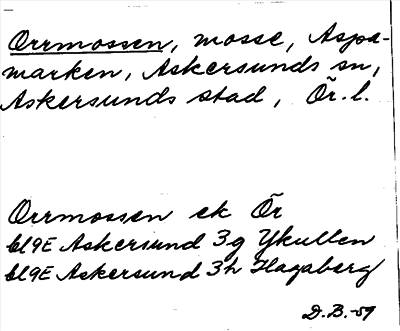 Orrmossen, mosse, Aspa-
marken, Askersunds sn,
Askersunds stad, Ör. l.
Orrmossen ek Ör
bl 9E Askersund 3g Ykullen
bl 9E Askersund 3h Hagaberg
D.B.-59